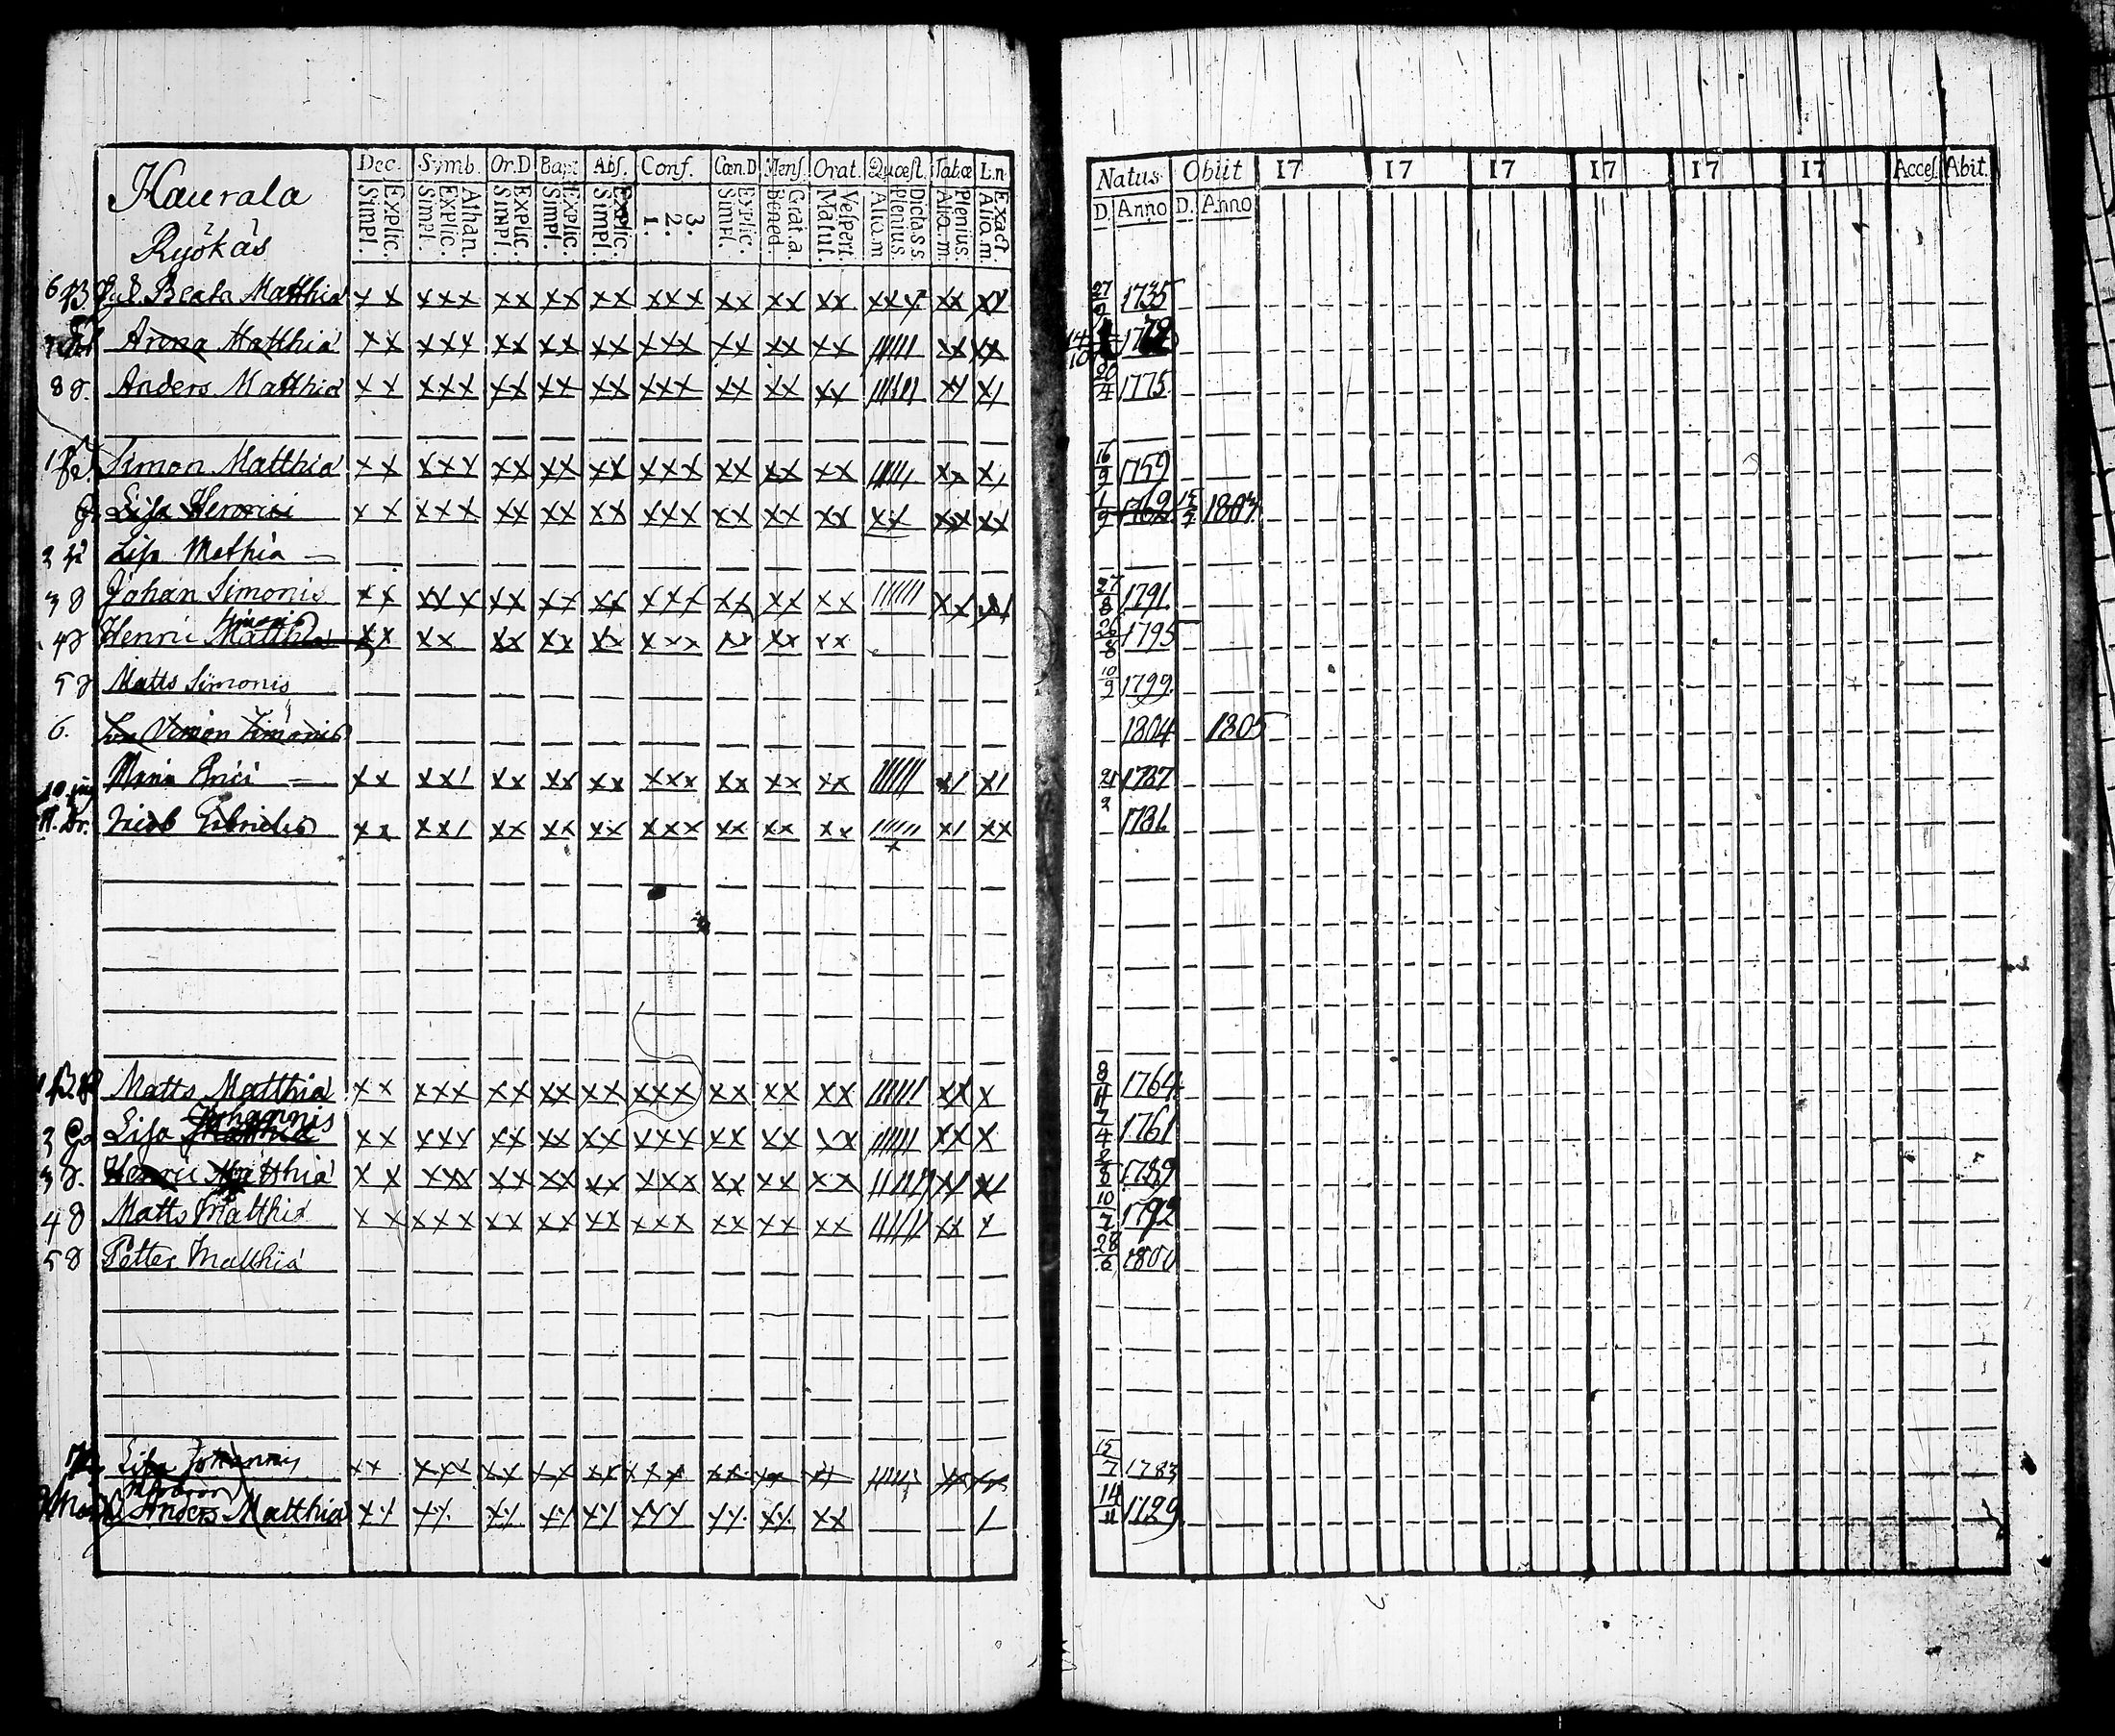 Haurala
Ryökäs
Dec. Symb. Or.D Bapt Abs. Conf. Cœn.D Mens. Orat. Quæst. Tabœ Ln
Explic. Simpl. Athan. Explic. Simpl. Explic. Simpl. Explic. Simpl. Explic. Simpl. 3. 2. 1. Explic. Simpl. Grat.a. Bened. Vespert. Matut. Dicta s.s. Plenius Aliq.m Plenius Aliq.m Exact. Aliq.m
Natus Obiit 17 17 17 17 17 17 Acces. Abit.
D. Anno D. Anno
6 Beata Matthiæ xx xxx xx xx xx xxx xx xx xx xxx xx xx 27 1735
Anna Matthiæ xx xxx xx xx xx xxx xx xx xx xx xx 14/10
8 d. Anders Matthiæ xx xxx xx xx xx xxx xx xx xx 20/4 1775
1 Simon Matthiæ xx xxx xx xx xx xxx xx xx xx xx 16/9 1759
Lisa Henrici xx xxx xx xx xx xxx xx xx xx xx xx xx 1/9 1762
2 Lisa Mathiæ
3 d Johan Simonis xx xxx xx xx xx xxx xx xx xx 27/8 1791
Simonis
4 d Henric Matthiæ xx xx xx xx xx xxx xx xx xx 1795
5 d Matts Simonis 10/9 1799
6. Simon Simonis 1804 1805
10 Maria Erici xx xx/ xx xx xx xxx xx xx xx x/ x/ 1787
11. Dr. Jacob Gabrielis xx xx/ xx xx xx xxx xx xx xx x/ xx 1781
1 Matts Matthiæ xx xxx xx xx xx xxx xx xx xx xx x 8/11 1764
Johannis
Lisa Matthiæ xx xxx xx xx xx xxx xx xx xx xx x 7/4 1761
3 d. Henric Matthiæ xx xxx xx xx xx xxx xx xx xx 1789
4 d Matts Matthiæ xx xxx xx xx xx xxx xx xx xx xx 10/7 1792
5 d Petter Matthiæ 28/6 1800
Lisa Johannis xx xxx xx xx xx xxx xx xx xx xx xx 15/7 1783
Anders Matthiæ 14/11 1729